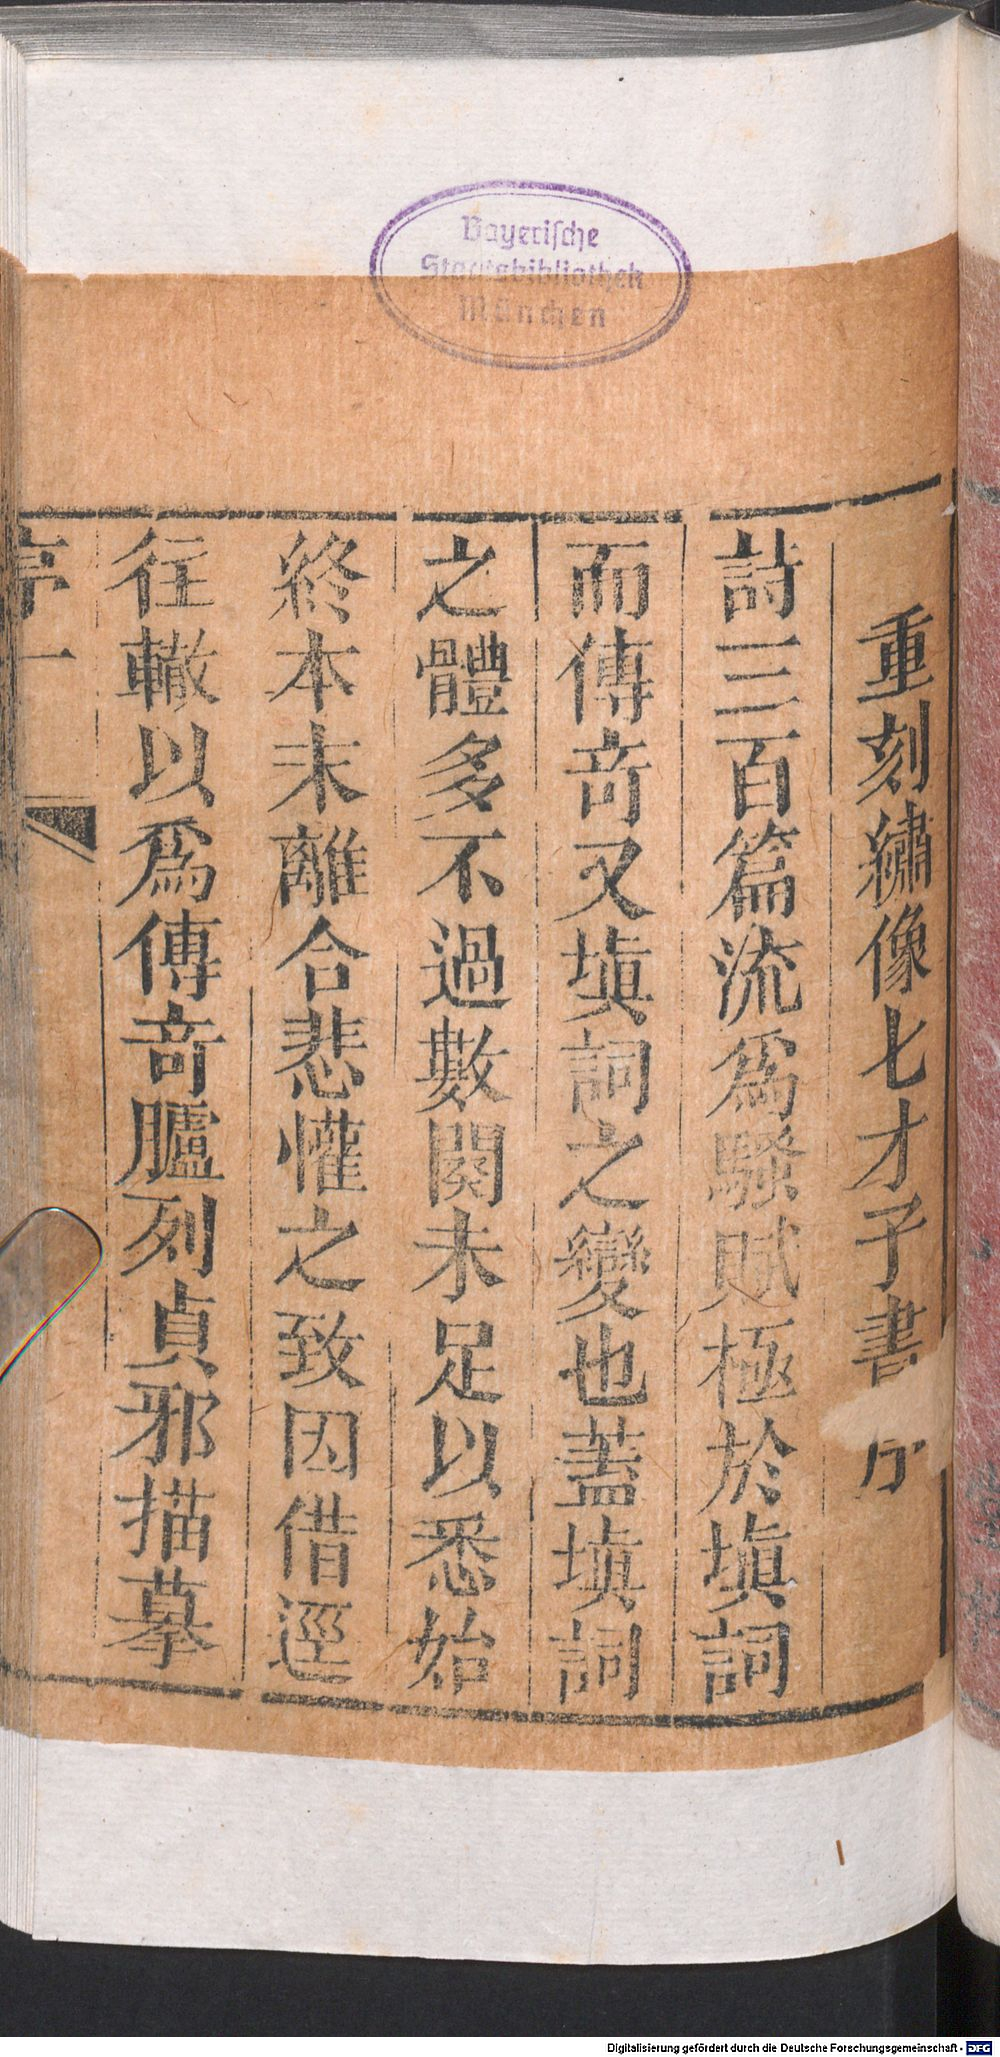 Bayerische
Staatsbibliothek
München
重刻繡像七才子書序
詩三百篇流爲騷賦極於塡詞
而傳奇又塡詞之變也蓋塡詞
之體多不過數闋未足以悉始
終本末離合悲懽之致因借逕
往轍以爲傳奇臚列貞邪描摹
序 一
Digitalisierung gefördert durch die Deutsche Forschungsgemeinschaft - DFG